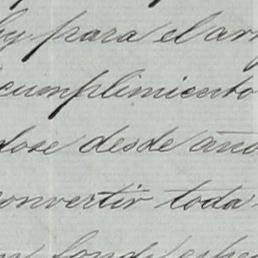 ley para el arr
cumplimiento
dose desde
convertir toda